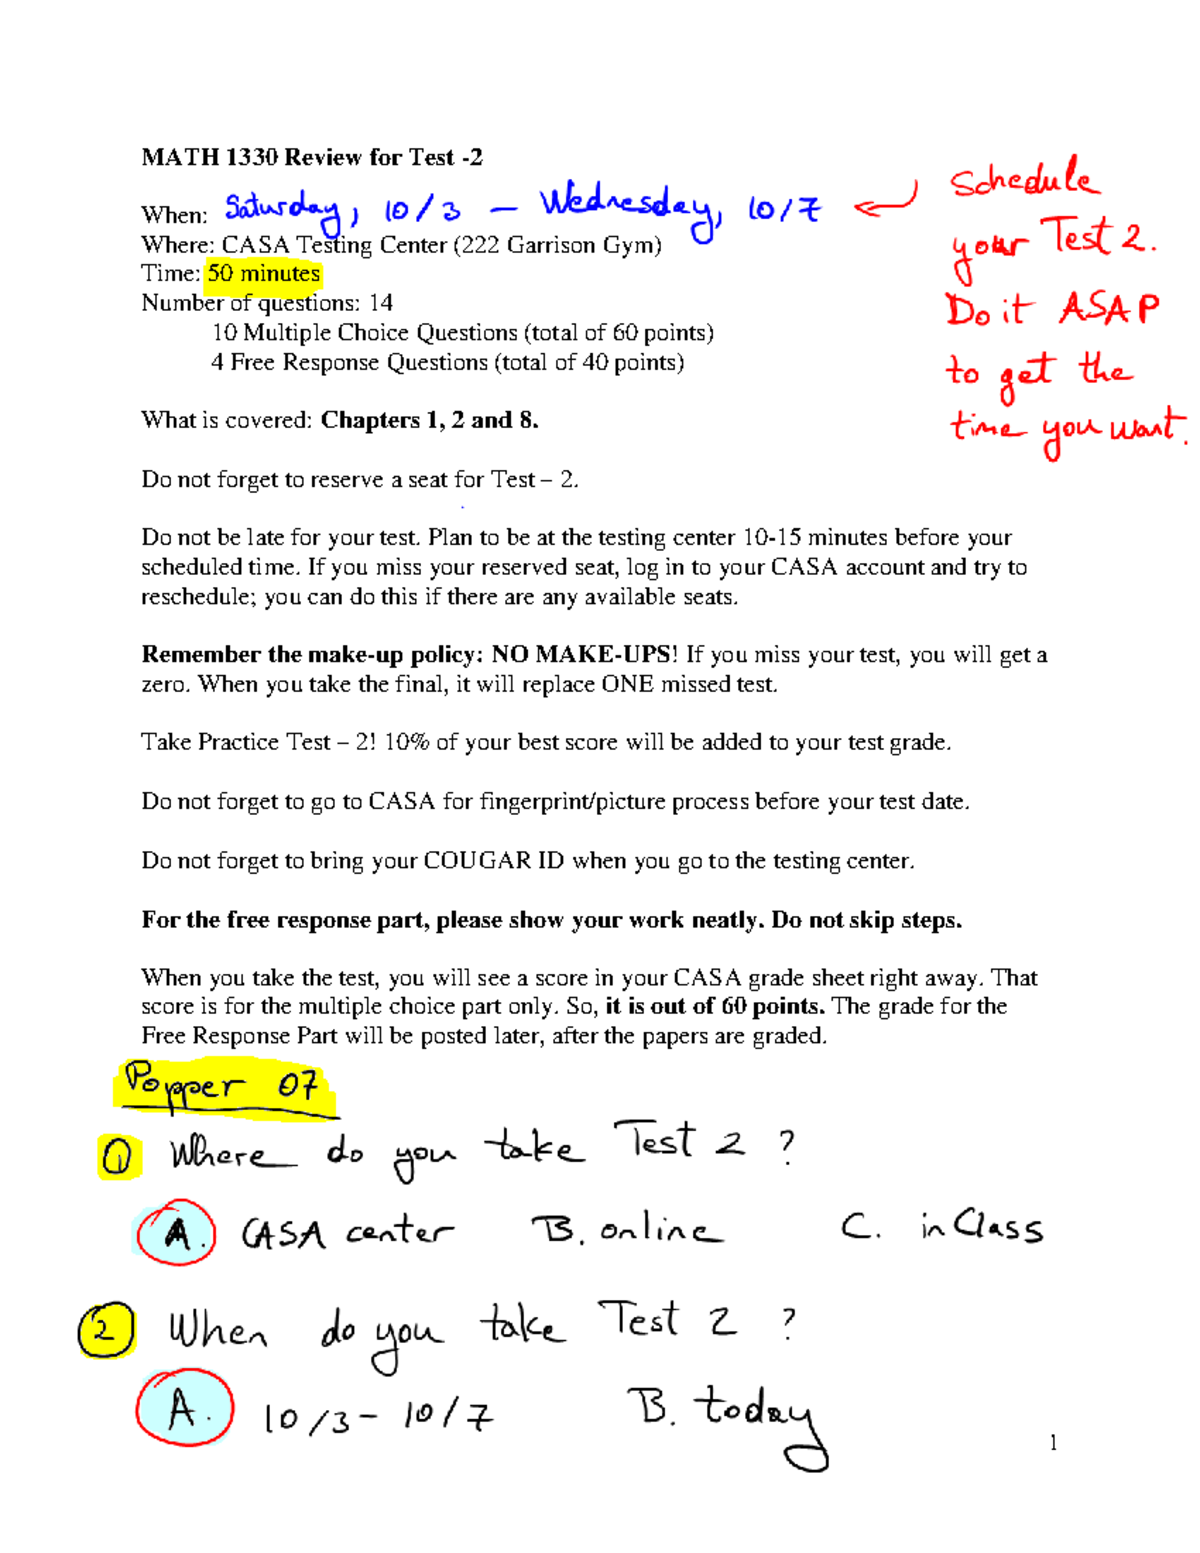 MATH 1330 Review for Test -2
When: Saturday, 10/3 – Wednesday, 10/7
Schedule
your Test 2.
Do it ASAP
to get the
time you want.
Where: CASA Testing Center (222 Garrison Gym)
Time: 50 minutes
Number of questions: 14
10 Multiple Choice Questions (total of 60 points)
4 Free Response Questions (total of 40 points)
What is covered: Chapters 1, 2 and 8.
Do not forget to reserve a seat for Test – 2.
Do not be late for your test. Plan to be at the testing center 10-15 minutes before your
scheduled time. If you miss your reserved seat, log in to your CASA account and try to
reschedule; you can do this if there are any available seats.
Remember the make-up policy: NO MAKE-UPS! If you miss your test, you will get a
zero. When you take the final, it will replace ONE missed test.
Take Practice Test – 2! 10% of your best score will be added to your test grade.
Do not forget to go to CASA for fingerprint/picture process before your test date.
Do not forget to bring your COUGAR ID when you go to the testing center.
For the free response part, please show your work neatly. Do not skip steps.
When you take the test, you will see a score in your CASA grade sheet right away. That
score is for the multiple choice part only. So, it is out of 60 points. The grade for the
Free Response Part will be posted later, after the papers are graded.
Popper 07
1 Where do you take Test 2 ?
A. CASA center B. online C. in Class
2 When do you take Test 2 ?
A. 10/3 – 10/7 B. today
1